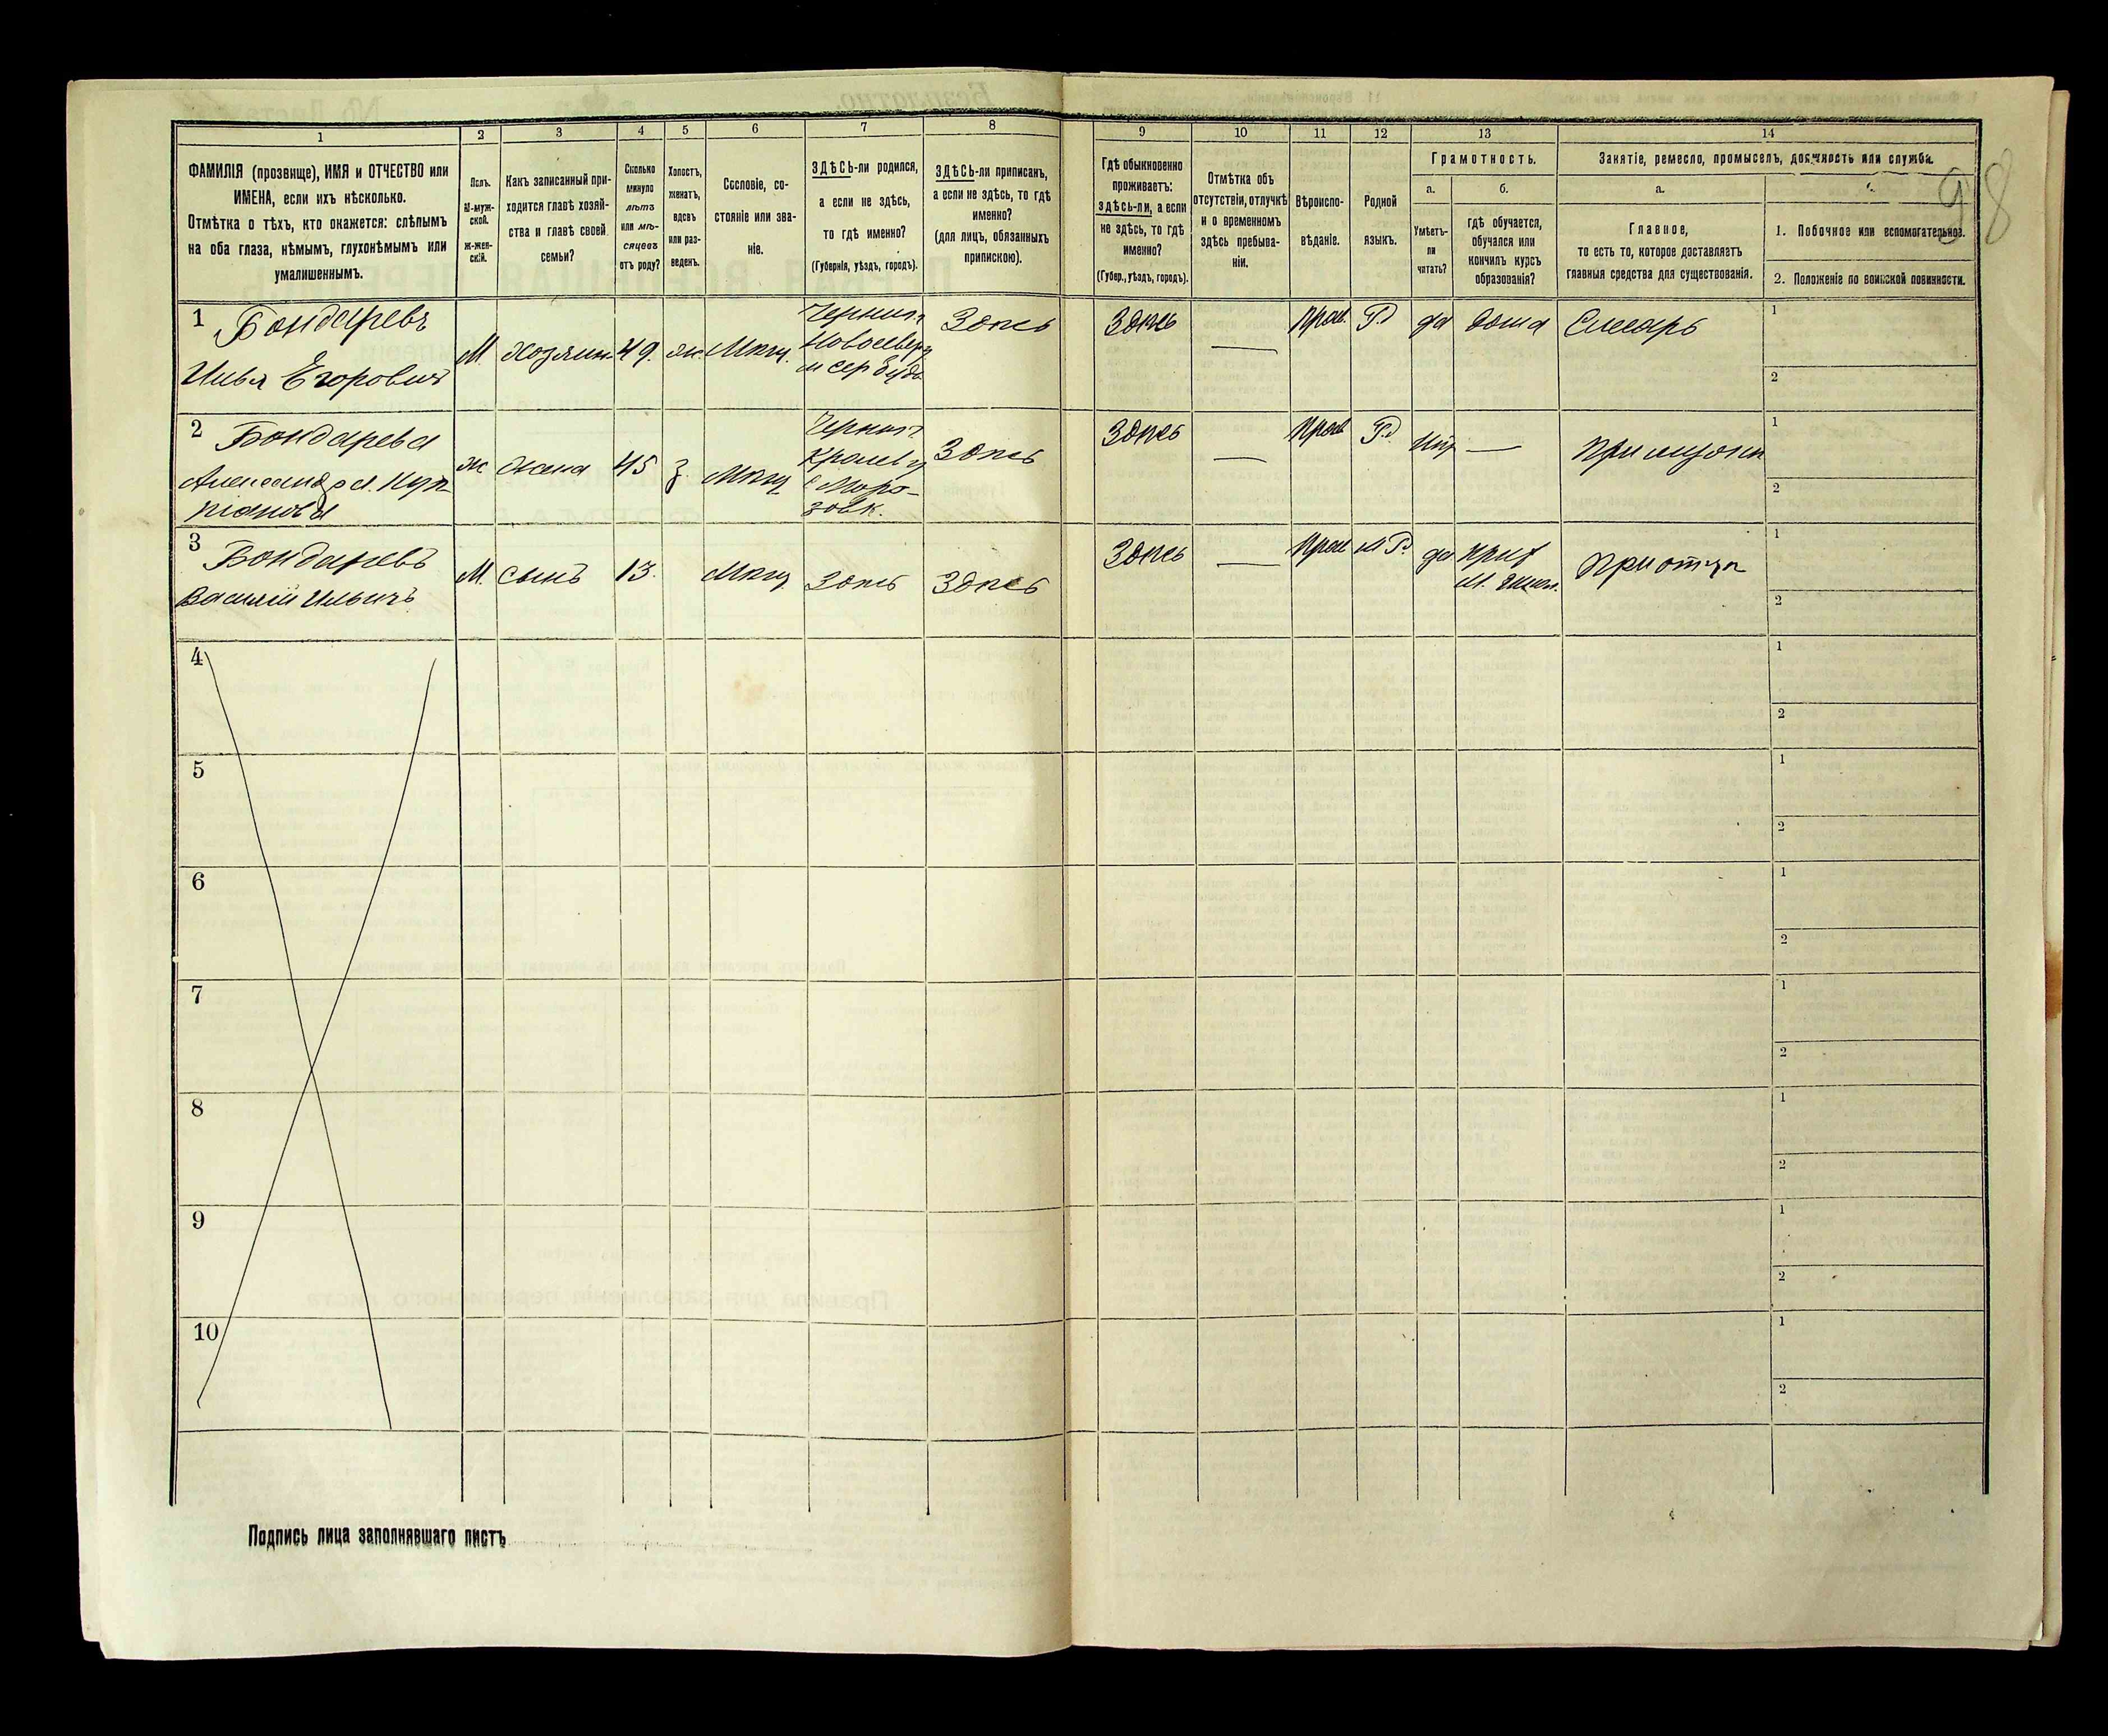 1
ФАМИЛІЯ (прозвище), ИМЯ и ОТЧЕСТВО или
ИМЕНА, если ихъ нѣсколько.
Отмѣтка о тѣхъ, кто окажется: слѣпымъ
на оба глаза, нѣмымъ, глухонѣмымъ или
умалишеннымъ.
2
Полъ.
М-муж-
ской.
ж-жен-
скій.
3
Какъ записанный при-
ходится главѣ хозяй-
ства и главѣ своей
семьи?
4
Сколько
минуло
лѣтъ
или мѣ-
сяцевъ
отъ роду?
5
Холостъ,
женатъ,
вдовъ
или раз-
веденъ.
6
Сословіе, со-
стояніе или зва-
ніе.
7
ЗДѢСЬ-ли родился,
а если не здѣсь,
то гдѣ именно?
(Губернія, уѣздъ, городъ).
8
ЗДѢСЬ-ли приписан,
а если не здѣсь, то гдѣ
именно?
(для лицъ, обязанныхъ
припискою).
9
Гдѣ обыкновенно
проживаетъ:
здѣсь-ли, а если
не здѣсь, то гдѣ
именно?
(Губер., уѣздъ, городъ).
10
Отмѣтка объ
отсутствіи, отлучкѣ
и о временномъ
здѣсь пребыва-
ніи.
11
Вѣроиспо-
вѣданіе.
12
Родной
языкъ.
13
Грамотность.
а.
Умѣетъ-
ли
читать?
б.
гдѣ обучается,
обучался или
кончилъ курсъ
образованія?
14
Занятіе, ремесло, промыселъ, должность или служба.
а.
Главное,
то есть то, которое доставляетъ
главныя средства для существованія.
1. Побочное или вспомогательное.
2. Положеніе по воинской повинности.
98
1 Бондаревъ
Илья Егоровичъ
М. хозяин 49. ж. Мѣщ.
Черниг.
Новосевер
м Сер Буда
Здѣсь
Здѣсь — Прав. Р. да дома Слесарь
1
2
2 Бондарева
Александра Купр-
ріанова
ж жена 45 з. Мѣщ
Черниг.
Кролев у
с Моро-
зовк.
Здѣсь
Здѣсь — Прав Р. Нѣт — При мужѣ
1
2
3 Бондаревъ
Василій Ильичъ
М. сынъ 13. Мѣщ Здѣсь Здѣсь
Здѣсь — Прав М Р. да
При отцѣ
1
2
4
1
2
5
1
2
6
1
2
7
1
2
8
1
2
9
1
2
10
1
2
Подпись лица заполнявшаго листъ